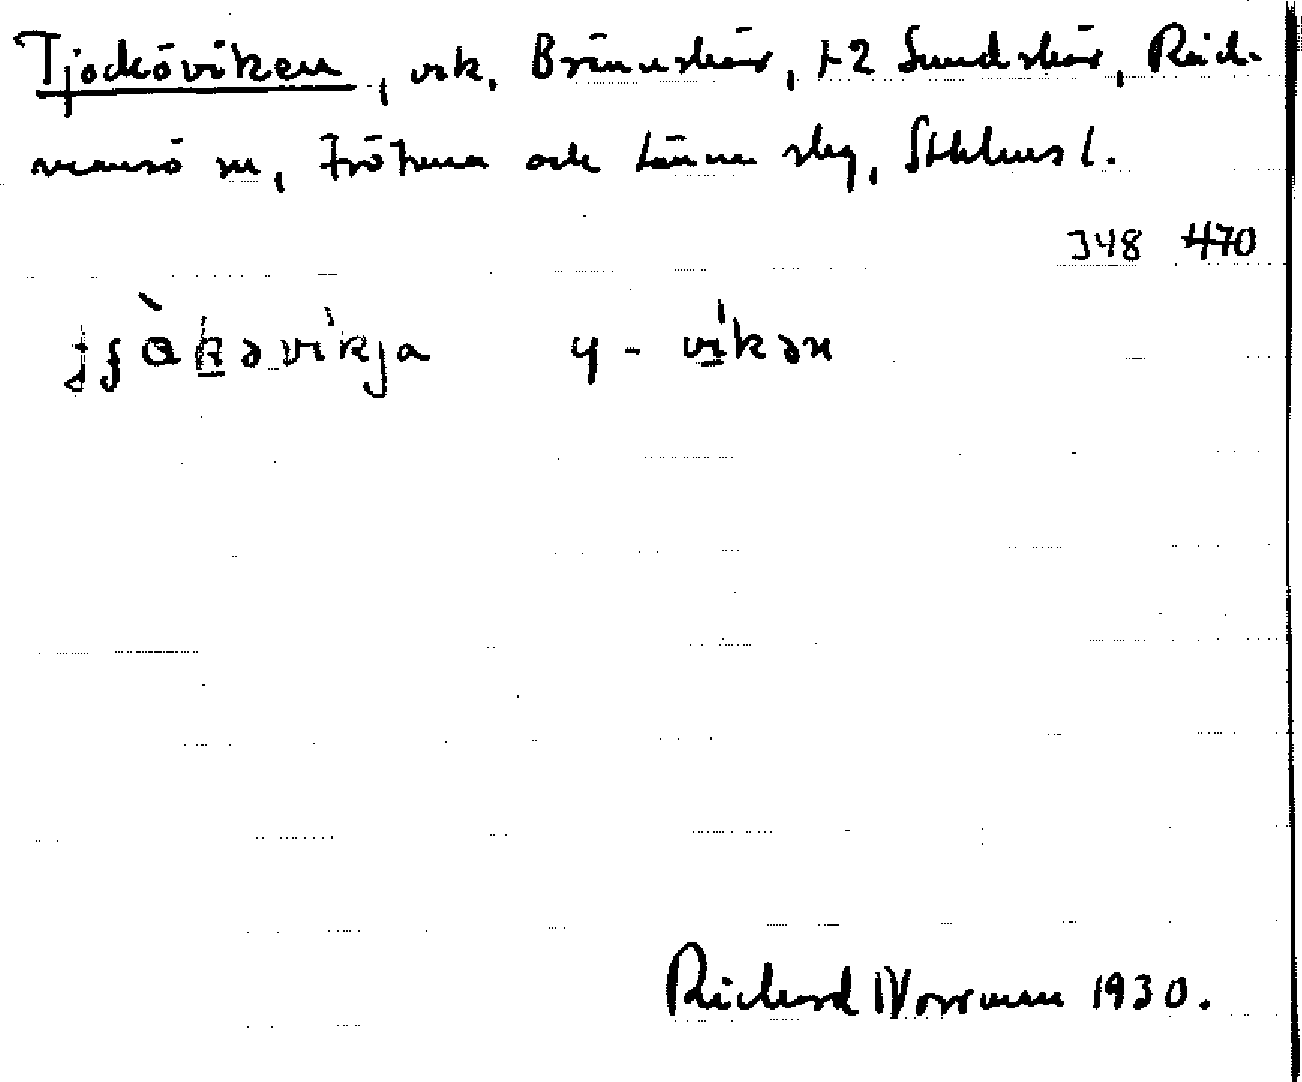 Tjocköviken, vik, Brännskär, 1-2 Sundskär, Räd-
mansö sn, Frötuna och Länna slg, Sthlms l.
348 470
y - vikən
Richard Norrman 1930.